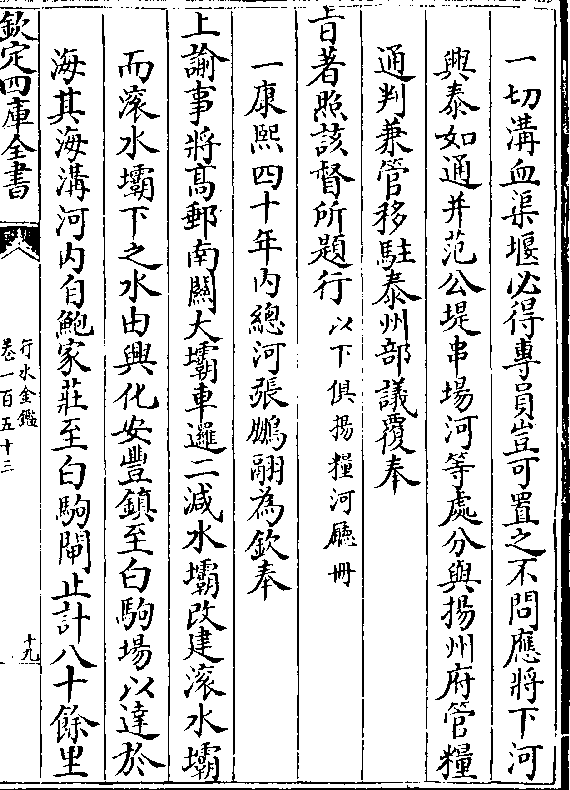 一切溝血渠堰必得專員豈可置之不問應將下河
興泰如通并范公堤串場河等處分與揚州府管糧
通判兼管移駐泰州部議覆奉
旨著照該督所題行以下俱揚糧河廳冊
一康熙四十年內總河張鵬翮為欽奉
上諭事將髙郵南關大壩車邏二減水壩改建滾水壩
而滾水壩下之水由興化安豐鎮至白駒場以達於
海其海溝河内自鮑家莊至白駒閘止計八十餘里
欽定四庫全書
行水金鑑
卷一百五十三
十九